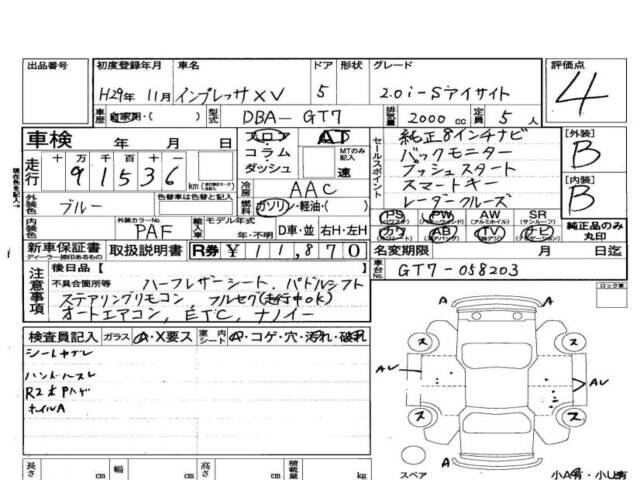 出品番号 初度登録年月 車名 ドア 形状 グレード 評価点
H29年 11月 インプレッサXV 5 2.0i-Sアイサイト 4
車歴 自家用・( ) 型式 DBA- GT7 排気量 2000 cc 定員 5 人
車検 年 月 日 フロア AT 純正8インチナビ [外装]
走行 十 万 千 百 十 一 コラム MTのみ記入 セールスポイント バックモニター B
91536 km ダッシュ 速 プッシュスタート
冷房 AAC スマートキー [内装]
外装色 ブルー 色替車は色替と記入 燃料 ガソリン・軽油・( ) レーダークルーズ B
内装色 外装カラーNo. PAF 輸入車 モデル年式 年・不明 D車・並 右H・左H
PS PW AW SR
カワ AB TV ナビ 純正品のみ丸印
新車保証書 取扱説明書 R券 ¥11,870 名変期限 月 日迄
ディーラー捺印あるもの
車台No. GT7-058203
注意事項 後日品( )
不具合箇所等 ハーフレザーシート、パドルシフト
ステアリングリモコン、フルセグ(走行中OK)
オートエアコン、ETC、ナノイー
ロック車
検査員記入 ガラス A・X要ス 室内シート A・コゲ・穴・汚れ・破れ
シートヤブレ
ハンドルスレ
R2ホPハゲ
ホイルA
A
ス ス
AU AU
ス ス
A
スペア 小A有・小U有
長さ cm 幅 cm 高さ cm 積載量 kg
現在色を記入→